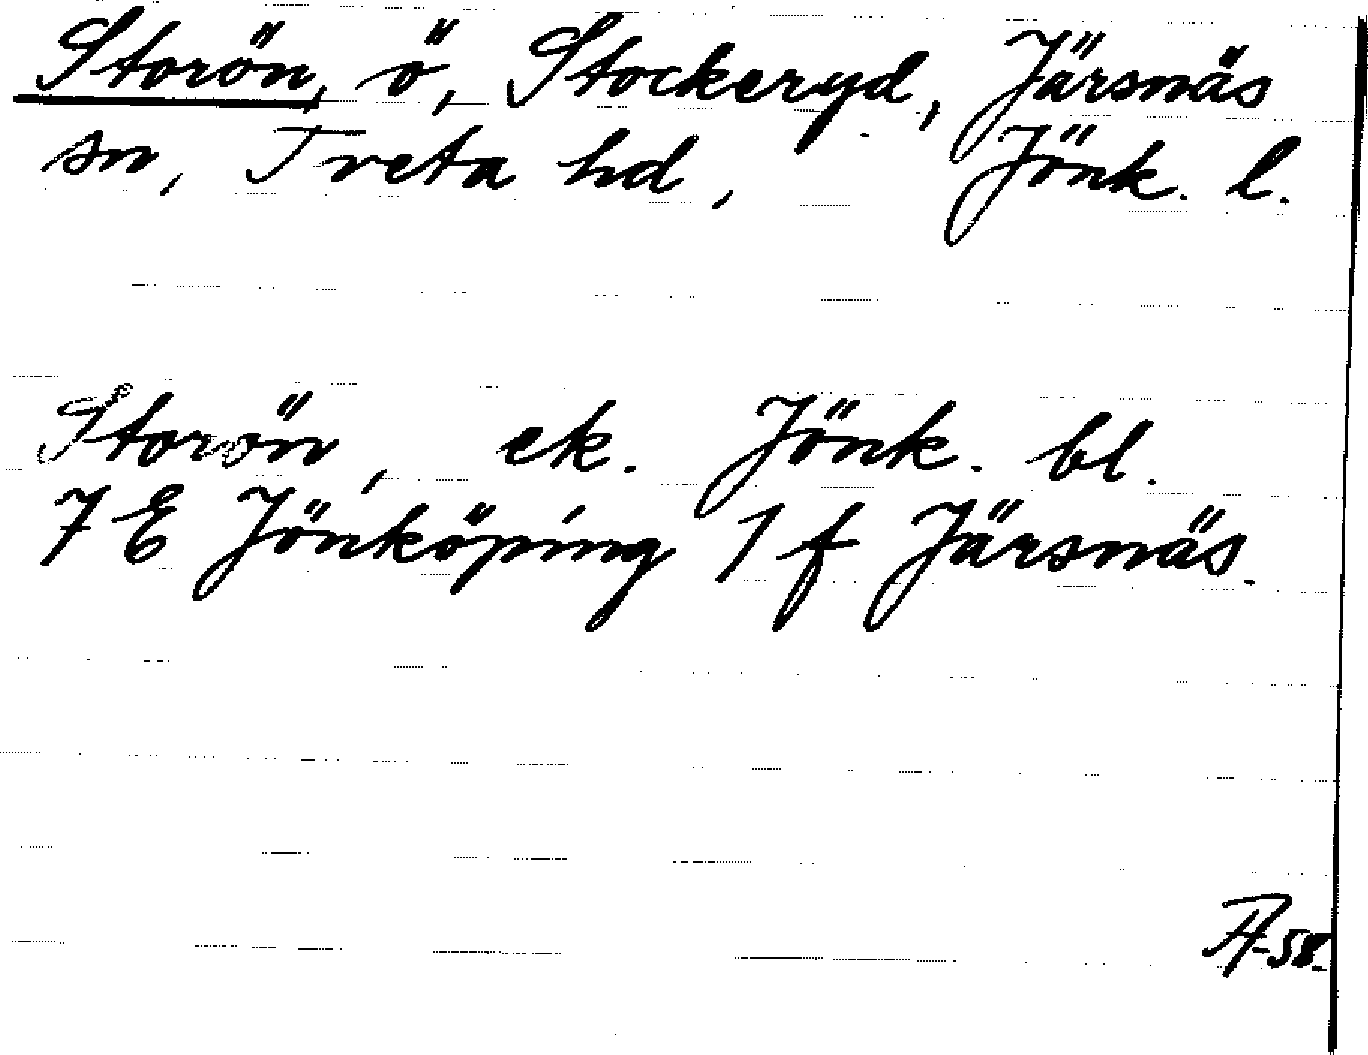 Storön, ö, Stockeryd, Järsnäs
sn, Tveta hd, Jönk. l.
Storön, ek. Jönk. bl.
7 E Jönköping 1 f Järsnäs.